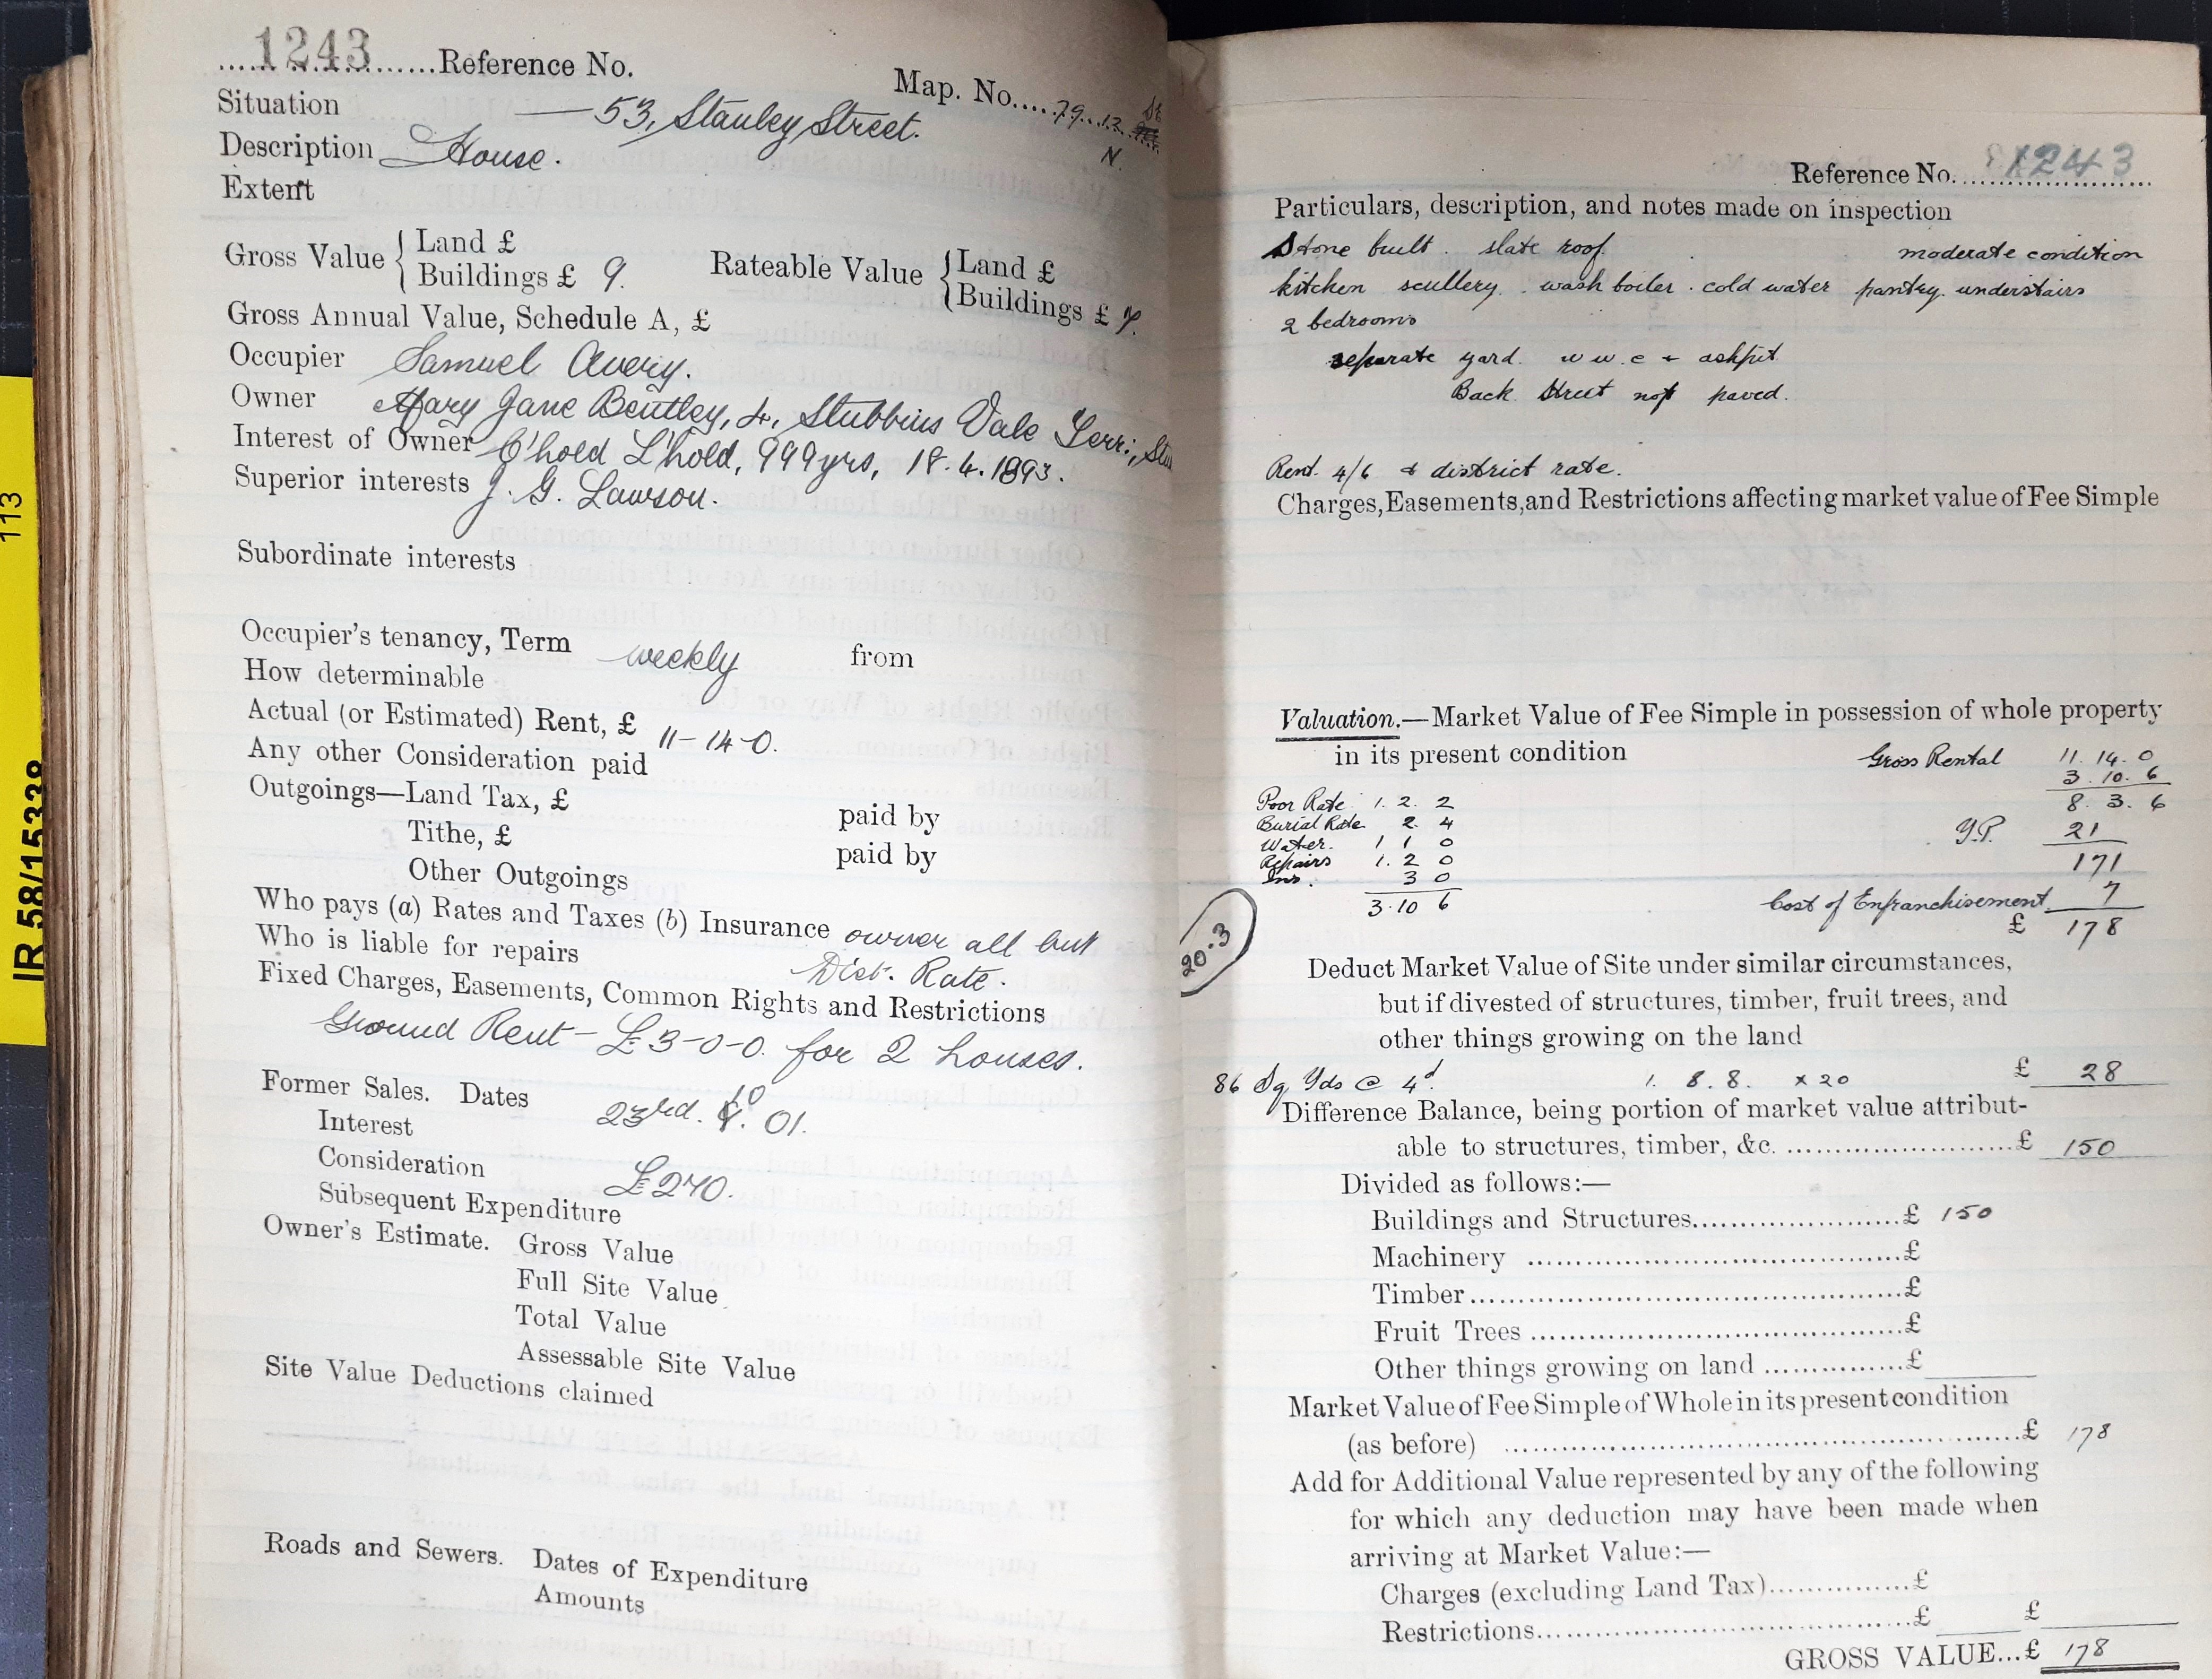 1243 Reference No.
Map. No. 79. 12
N.
Situation — 53, Stanley Street.
Description House.
Extent
Gross Value { Land £
Buildings £ 9.
Rateable Value { Land £
Buildings £ 7.
Gross Annual Value, Schedule A, £
Occupier Samuel Avery.
Owner Mary Jane Bentley, 4, Stubbins Vale Terr:, Stu
Interest of Owner C'hold L'hold, 999 yrs, 18. 4. 1893.
Superior interests J. G. Lawson.
Subordinate interests
Occupier's tenancy, Term weekly from
How determinable
Actual (or Estimated) Rent, £ 11-14-0.
Any other Consideration paid
Outgoings—Land Tax, £ paid by
Tithe, £ paid by
Other Outgoings
Who pays (a) Rates and Taxes (b) Insurance owner all but
Who is liable for repairs Dist. Rate.
Fixed Charges, Easements, Common Rights and Restrictions
Ground Rent - £3-0-0. for 2 houses.
Former Sales. Dates 23rd. 10. 01.
Interest
Consideration £240.
Subsequent Expenditure
Owner's Estimate. Gross Value
Full Site Value
Total Value
Assessable Site Value
Site Value Deductions claimed
Roads and Sewers. Dates of Expenditure
Amounts
113
IR 58/15338
Reference No. 1243
Particulars, description, and notes made on inspection
Stone built. slate roof. moderate condition
kitchen scullery. wash boiler. cold water pantry. understairs
2 bedrooms
separate yard. w w.c + ashpit.
Back Street not paved.
Rent. 4/6 & district rate.
Charges, Easements, and Restrictions affecting market value of Fee Simple
Valuation.—Market Value of Fee Simple in possession of whole property
in its present condition Gross Rental 11. 14. 0
3. 10. 6
Poor Rate 1. 2. 2 8. 3. 6
Burial Rate 2. 4
Y.P. 21
Water. 1 1 0
Repairs 1. 2 0 171
Ins. 3 0
Cost of Enfranchisement 7
3. 10 6
£ 178
20.3
Deduct Market Value of Site under similar circumstances,
but if divested of structures, timber, fruit trees, and
other things growing on the land
86 Sq Yds @ 4d. 1. 8. 8. x 20 £ 28
Difference Balance, being portion of market value attribut-
able to structures, timber, &c. £ 150
Divided as follows:—
Buildings and Structures £ 150
Machinery £
Timber £
Fruit Trees £
Other things growing on land £
Market Value of Fee Simple of Whole in its present condition
(as before) £ 178
Add for Additional Value represented by any of the following
for which any deduction may have been made when
arriving at Market Value:—
Charges (excluding Land Tax) £
Restrictions £ £
GROSS VALUE...£ 178